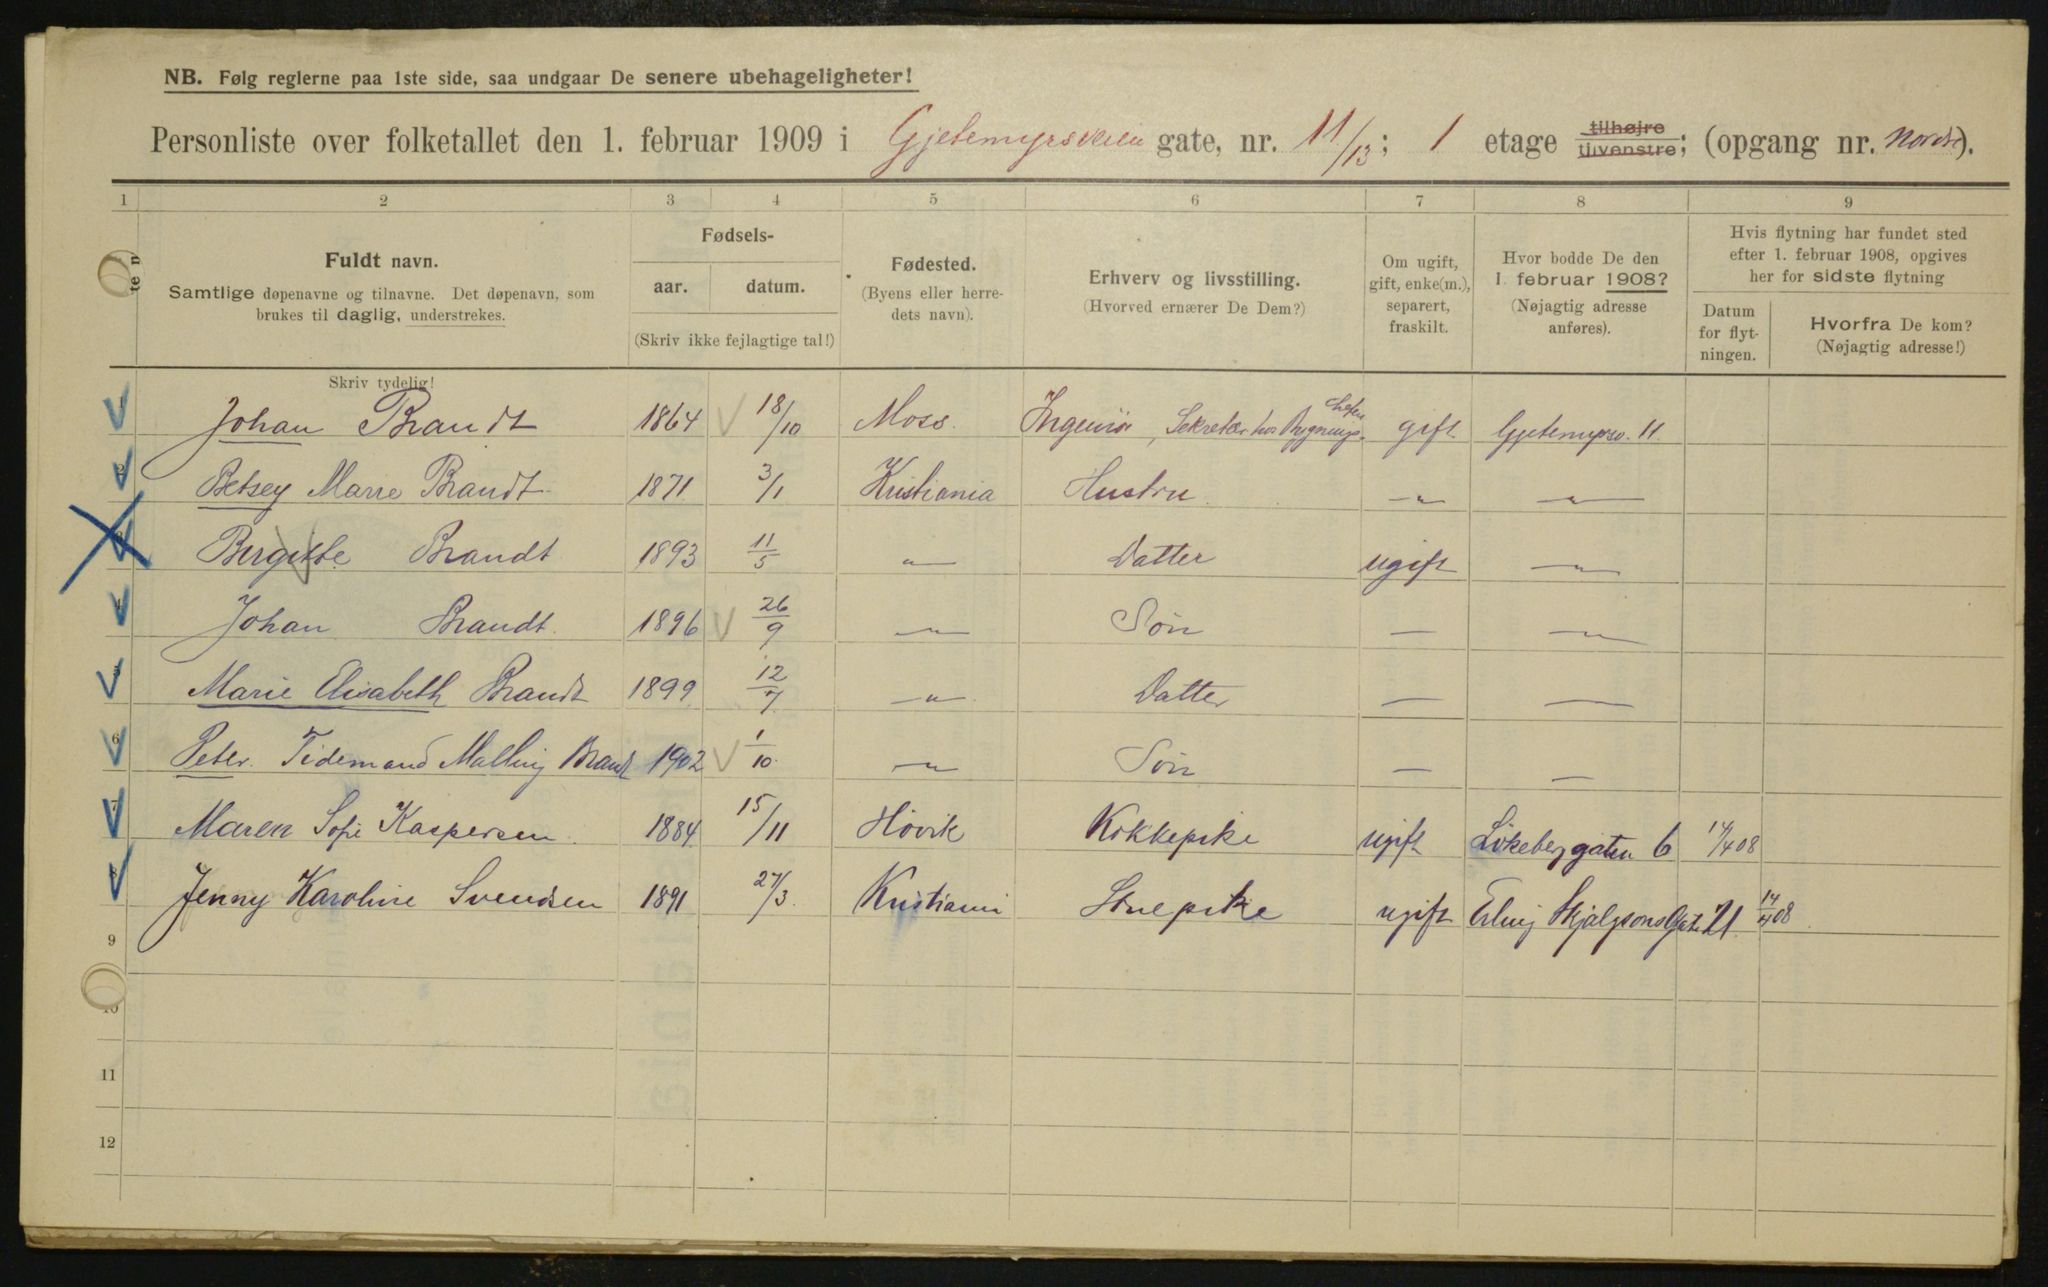 NB. Følg reglerne paa 1ste side, saa undgaar De senere ubehageligheter!
Personliste over folketallet den 1. februar 1909 i Gjetemyrsveien gate, nr. 11/13; 1 etage tilhøjre tilvenstre; (opgang nr. Nordre).
1 2 3 4 5 6 7 8 9
Fuldt navn.
Samtlige døpenavne og tilnavne. Det døpenavn, som
brukes til daglig, understrekes.
Fødsels-
aar. datum.
(Skriv ikke fejlagtige tal!)
Fødested.
(Byens eller herre-
dets navn).
Erhverv og livsstilling.
(Hvorved ernærer De Dem?)
Om ugift,
gift, enke(m.),
separert,
fraskilt.
Hvor bodde De den
1. februar 1908?
(Nøjagtig adresse
anføres).
Hvis flytning har fundet sted
efter 1. februar 1908, opgives
her for sidste flytning
Datum
for flyt-
ningen.
Hvorfra De kom?
(Nøjagtig adresse!)
Skriv tydelig!
1 Johan Brandt 1864 18/10 Moss. Ingeniør, Sekretær hos Bygnings- chefen gift Gjetemyrsv. 11
2 Betsey Marie Brandt 1871 3/1 Kristiania Hustru —"— —"—
3 Bergitte Brandt 1893 11/5 —"— Datter ugift —"—
4 Johan Brandt 1896 26/9 —"— Søn — —"—
5 Marie Elisabeth Brandt 1899 12/7 —"— Datter — —
6 Peter Tidemand Malling Brandt 1902 1/10 —"— Søn — —
7 Maren Sofie Kaspersen 1884 15/11 Høvik Kokkepike ugift Løkeberggaten 6 14/4 08
8 Jenny Karoline Svendsen 1891 27/3 Kristiania Stuepike ugift Erling Skjalgsons Gate 21 14/4 08
9
10
11
12